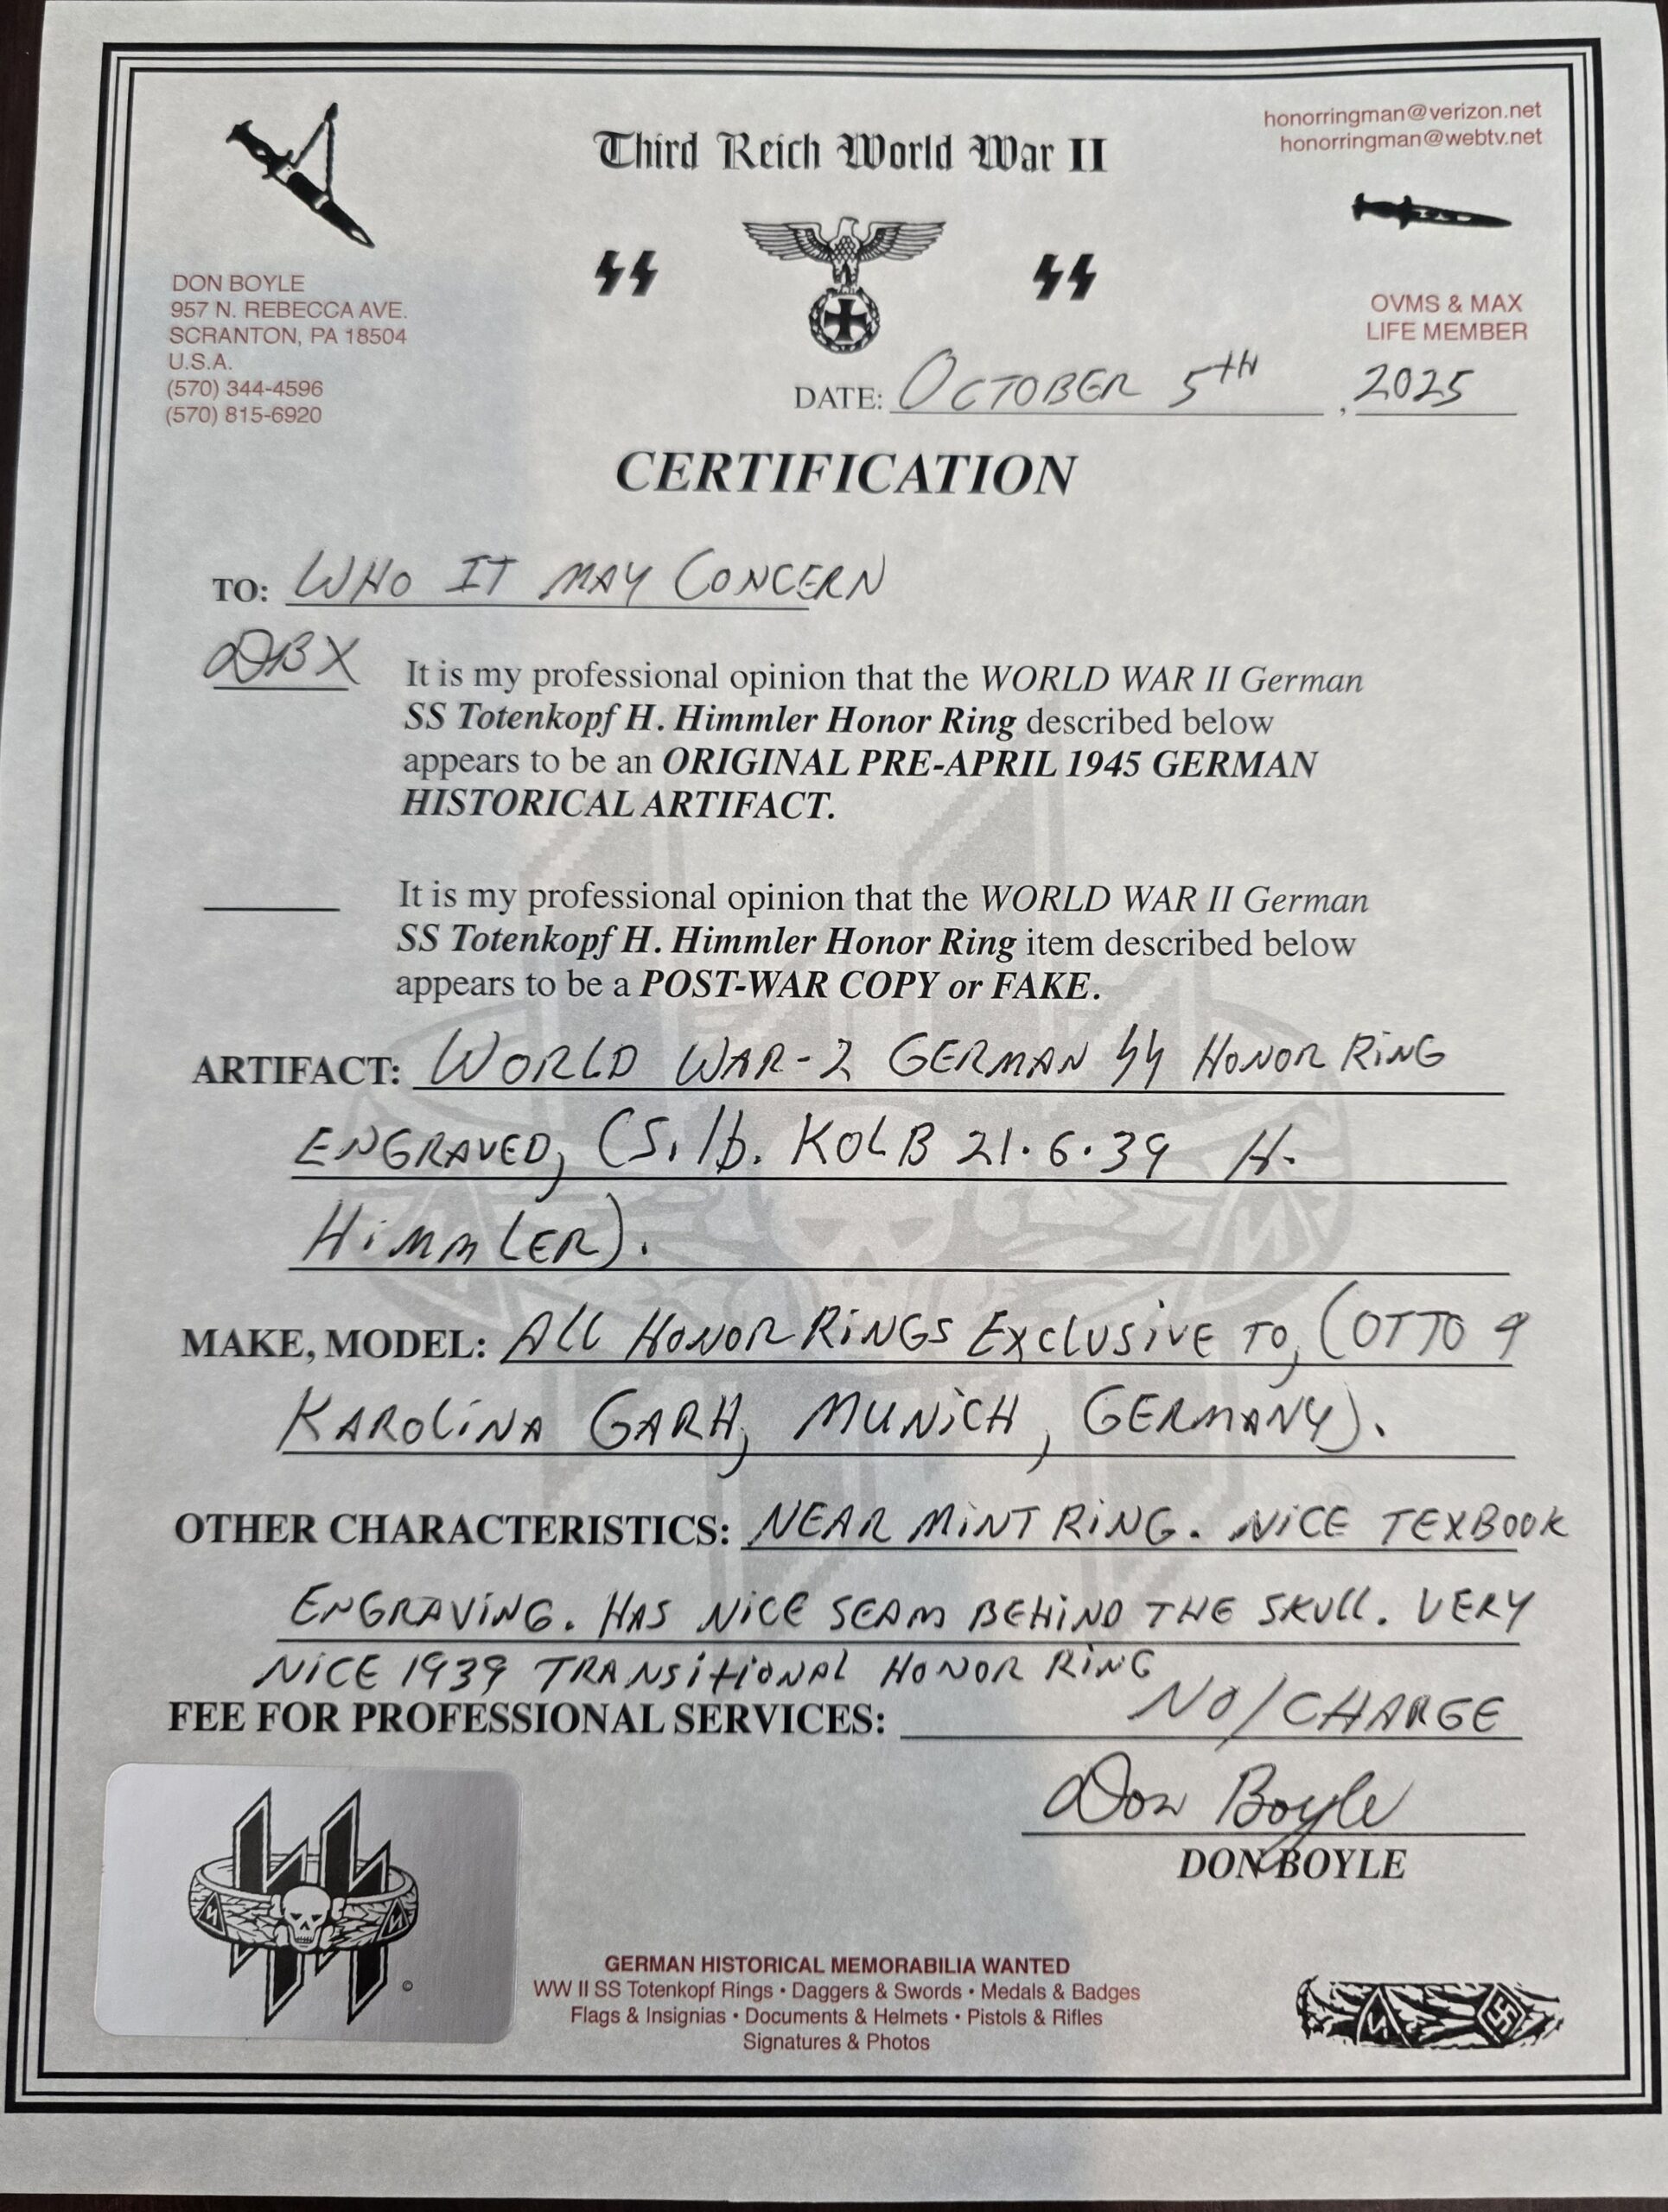 honorringman@verizon.net
honorringman@webtv.net
Third Reich World War II
DON BOYLE
957 N. REBECCA AVE.
SCRANTON, PA 18504
U.S.A.
(570) 344-4596
(570) 815-6920
OVMS & MAX
LIFE MEMBER
DATE: OCTOBER 5TH, 2025
CERTIFICATION
TO: WHO IT MAY CONCERN
DBX
It is my professional opinion that the WORLD WAR II German
SS Totenkopf H. Himmler Honor Ring described below
appears to be an ORIGINAL PRE-APRIL 1945 GERMAN
HISTORICAL ARTIFACT.
It is my professional opinion that the WORLD WAR II German
SS Totenkopf H. Himmler Honor Ring item described below
appears to be a POST-WAR COPY or FAKE.
ARTIFACT: WORLD WAR-2 GERMAN SS HONOR RING
ENGRAVED, (S. lb. KOLB 21.6.39 H.
HIMMLER).
MAKE, MODEL: ALL HONOR RINGS EXCLUSIVE TO, (OTTO &
KAROLINA GARH, MUNICH, GERMANY).
OTHER CHARACTERISTICS: NEAR MINT RING. NICE TEXBOOK
ENGRAVING. HAS NICE SEAM BEHIND THE SKULL. VERY
NICE 1939 TRANSITIONAL HONOR RING
FEE FOR PROFESSIONAL SERVICES: NO/CHARGE
Don Boyle
DON BOYLE
GERMAN HISTORICAL MEMORABILIA WANTED
WW II SS Totenkopf Rings • Daggers & Swords • Medals & Badges
Flags & Insignias • Documents & Helmets • Pistols & Rifles
Signatures & Photos